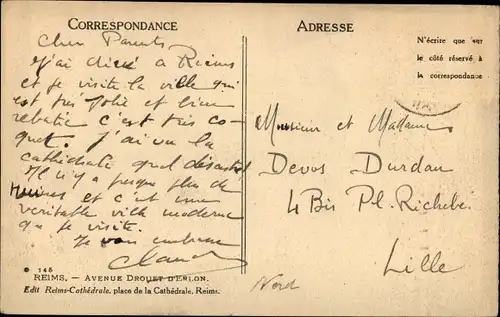 CORRESPONDANCE
Cher Parents
J'ai diné a Reims
et je visite la ville qui
est très jolie et bien
rebatie c'est très co-
quet. J'ai vu la
cathédrale quel désastre
Il n'y a presque plus de
ruines et c'est une
veritable ville moderne
que je visite.
Je vous embrasse
Claude
© 145
REIMS. — AVENUE DROUET D'ERLON.
Edit Reims-Cathédrale, place de la Cathédrale, Reims.
ADRESSE
N'écrire que sur
le côté réservé à
la correspondance
Monsieur et Madame
Devos Durdau
4 Bis Pl. Richebé
Lille
Nord